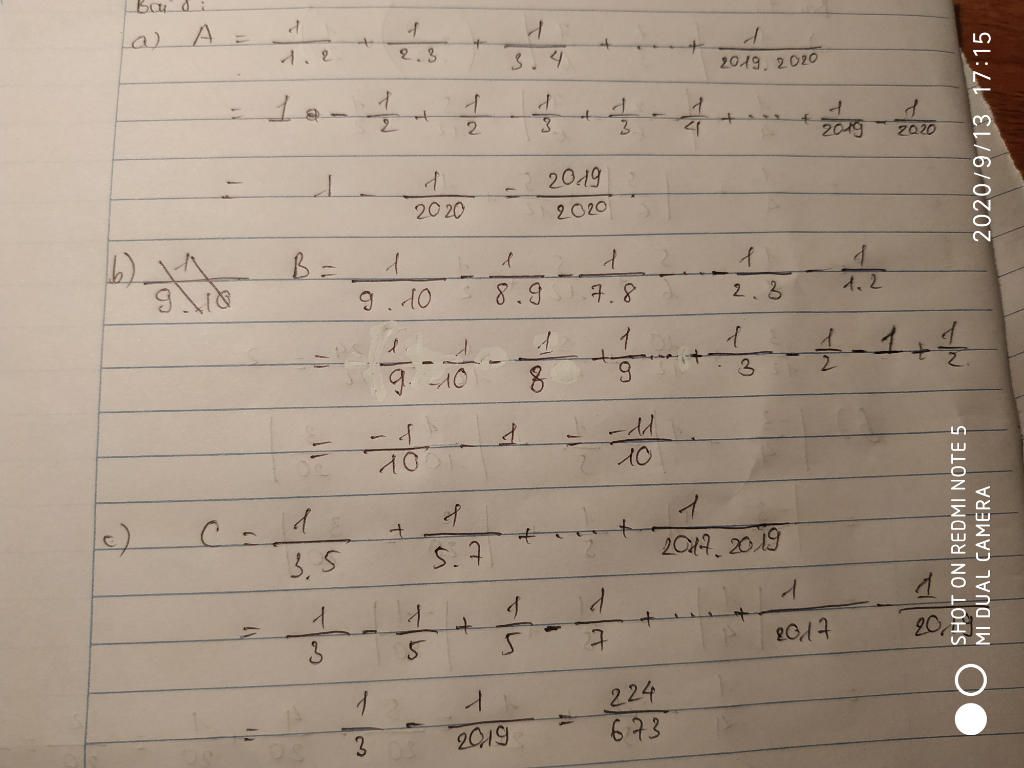 Bài 8:
a) A = 1/1.2 + 1/2.3 + 1/3.4 + ....+ 1/2019.2020
= 1 - 1/2 + 1/2 - 1/3 + 1/3 - 1/4 + ... + 1/2019 - 1/2020
= 1 - 1/2020 = 2019/2020.
b) 1/9.10 B = 1/9.10 - 1/8.9 - 1/7.8 - ... - 1/2.3 - 1/1.2
= 1/9 - 1/10 - 1/8 + 1/9 ... + 1/3 - 1/2 - 1 + 1/2
= -1/10 - 1 = -11/10.
c) C = 1/3.5 + 1/5.7 + ... + 1/2017.2019
= 1/3 - 1/5 + 1/5 - 1/7 + .... + 1/2017 - 1/2019
= 1/3 - 1/2019 = 224/673
2020/9/13 17:15
SHOT ON REDMI NOTE 5
MI DUAL CAMERA